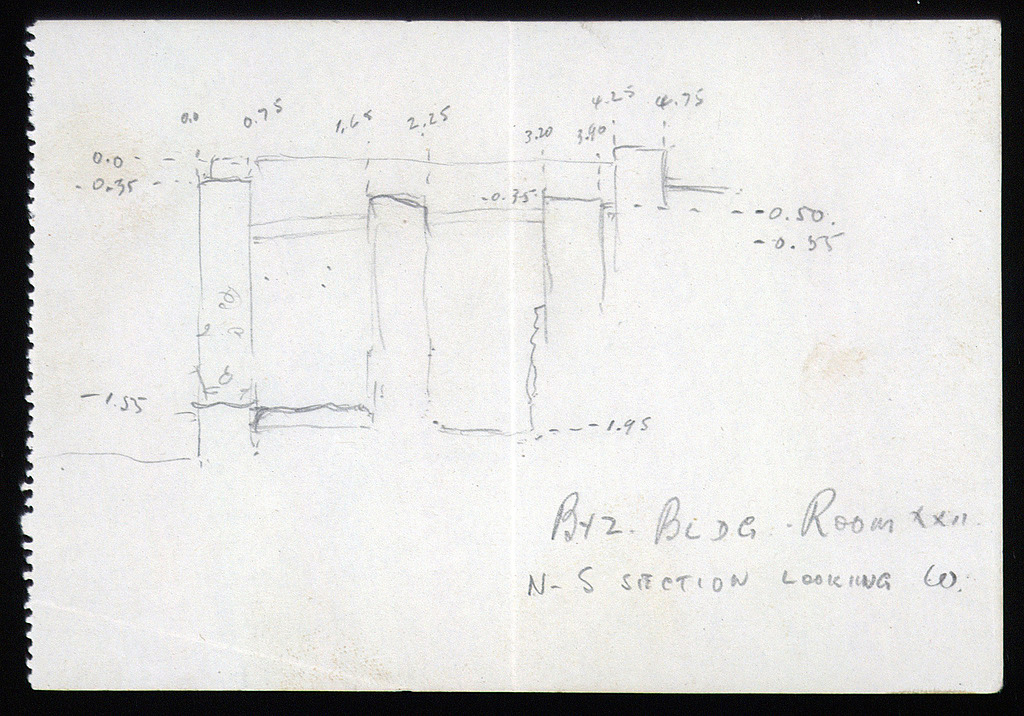 0.0 0.75 1.65 2.25 3.20 3.90 4.25 4.75
0.0
-0.35
-0.35
-0.50.
-0.55
-1.55
-1.95
BYZ. BLDG. ROOM XXII.
N-S SECTION LOOKING W.